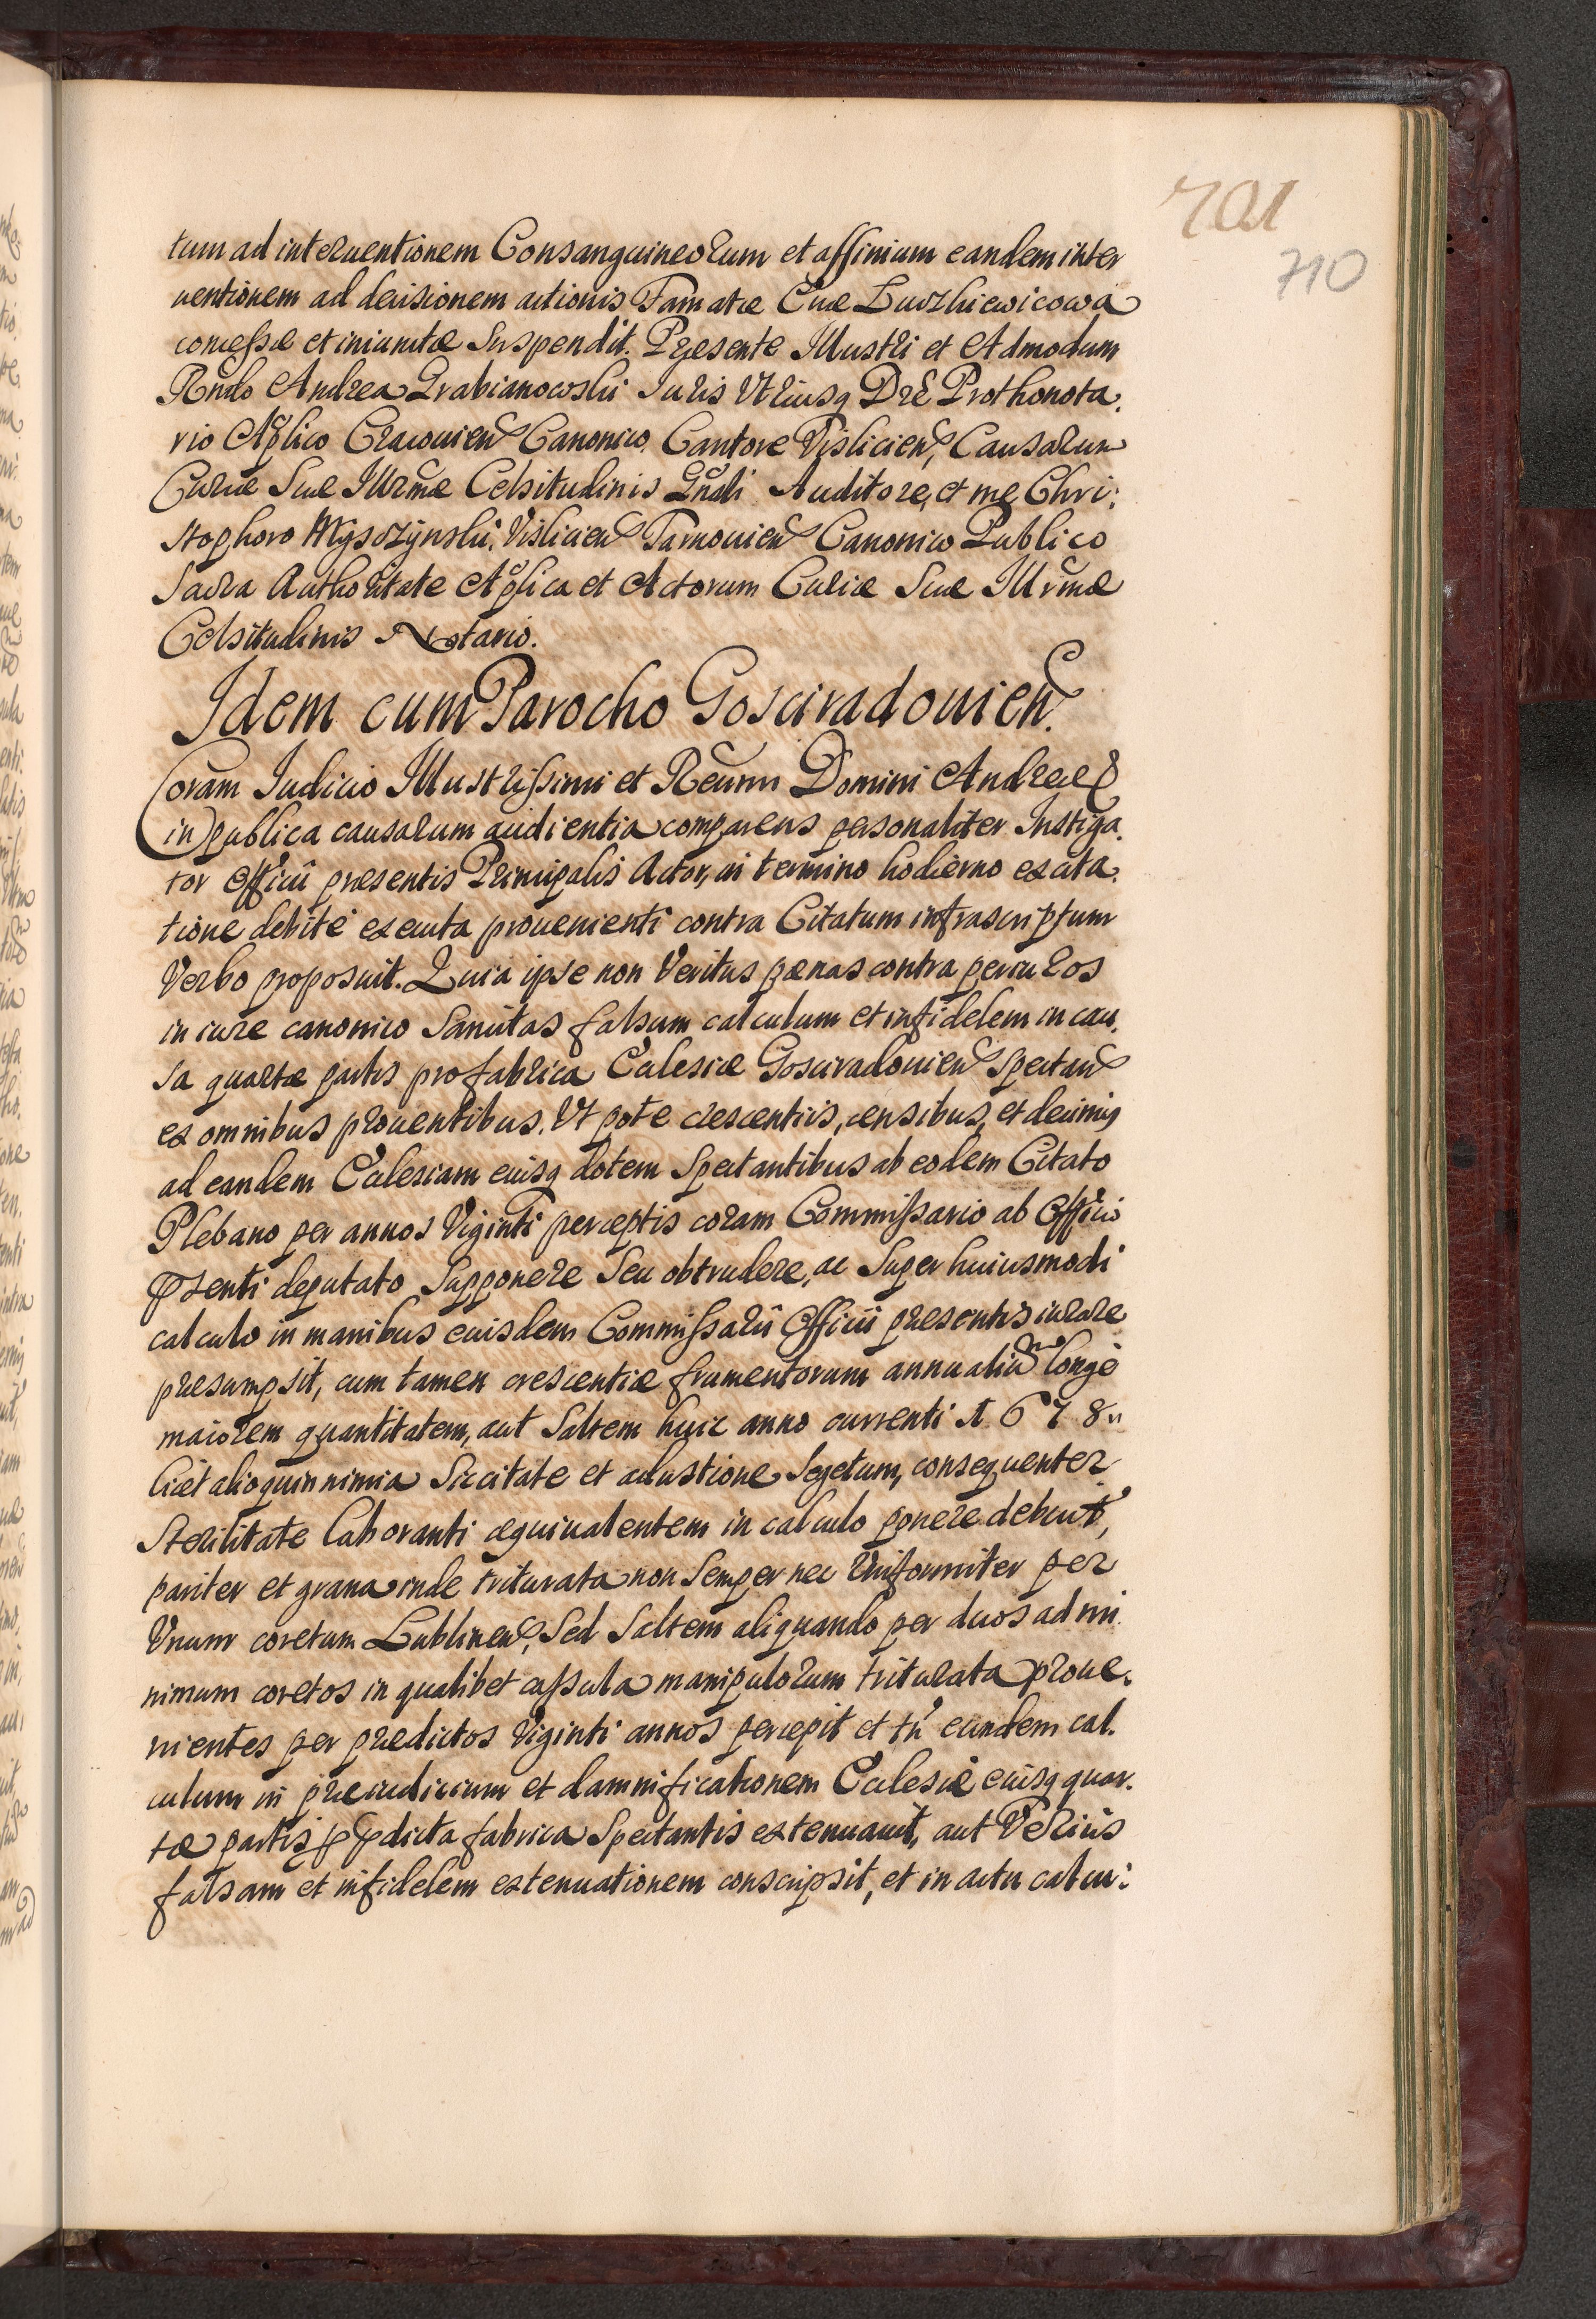 701
710
tum ad interuentionem Consanguineorum et affinium eandem inter
uentionem ad decisionem actionis Famatæ Euæ Luczkiewicowa
concessæ et iniunctæ Suspendit. Presente Illustri et Admodum
Rndo Andrea Grabianowski Iuris Vtriusq Dre Prothonota.
rio Aplico Cracouien Canonico. Cantore Vislicien, Causarum
Curiæ Suæ Illrmæ Celsitudinis Gnali Auditore, et me Chri:
stophoro Myszzynski. Vislicien Tarnouien Canonico Publico
Sacra Authoritate Aplica et Actorum Curiæ Suæ Illrmæ
Celsitudinis Notario.
Idem cum Parocho Gosciradouien.
Coram Iudicio Illustrissimi et Reumi Domini Andreæ
in publica causarum audientia comparens personaliter Instiga.
tor Officii presentis Principalis Actor, in termino hodierno ex cita.
tione debite executa prouenienti contra Citatum infrascriptum
Verbo proposuit. Quia ipse non Veritus pænas contra periuros
in iure canonico Sancitas falsum calculum et infidelem in cau.
sa quartæ partis pro fabrica Eclesiæ Gosciradouien Spectan
ex omnibus prouentibus. Vt pote crescentiis, censibus, et decimis
ad eandem Eclesiam eiusq dotem Spectantibus ab eodem Citato
Plebano per annos Viginti perceptis coram Commissario ab Officio
psenti deputato Supponere Seu obtrudere, ac Super huiusmodi
calculo in manibus eiusdem Commissarii Officii presentis iurare
præsumpsit, cum tamen crescentiæ frumentorum annualim longe
maiorem quantitatem, aut Saltem huic anno currenti 1678
licet alioquin nimia Siccitate et adustione Segetum, consequenter
Sterilitate laboranti æquiualentem in calculo ponere debuit,
pariter et grana inde triturata non Semper nec Vniformiter per
Vnum coretum Lublinen, Sed Saltem aliquando per duos ad mi
nimum coretos in qualibet cassula manipulorum triturata proue.
nientes per prædictos Viginti annos percepit et tn eundem cal.
culum in præiudicium et damnificationem Eclesiæ eiusq quar.
tæ partis p pdicta fabrica Spectantis extenuauit, aut Verius
falsam et infidelem extenuationem conscripsit, et in actu calcu: